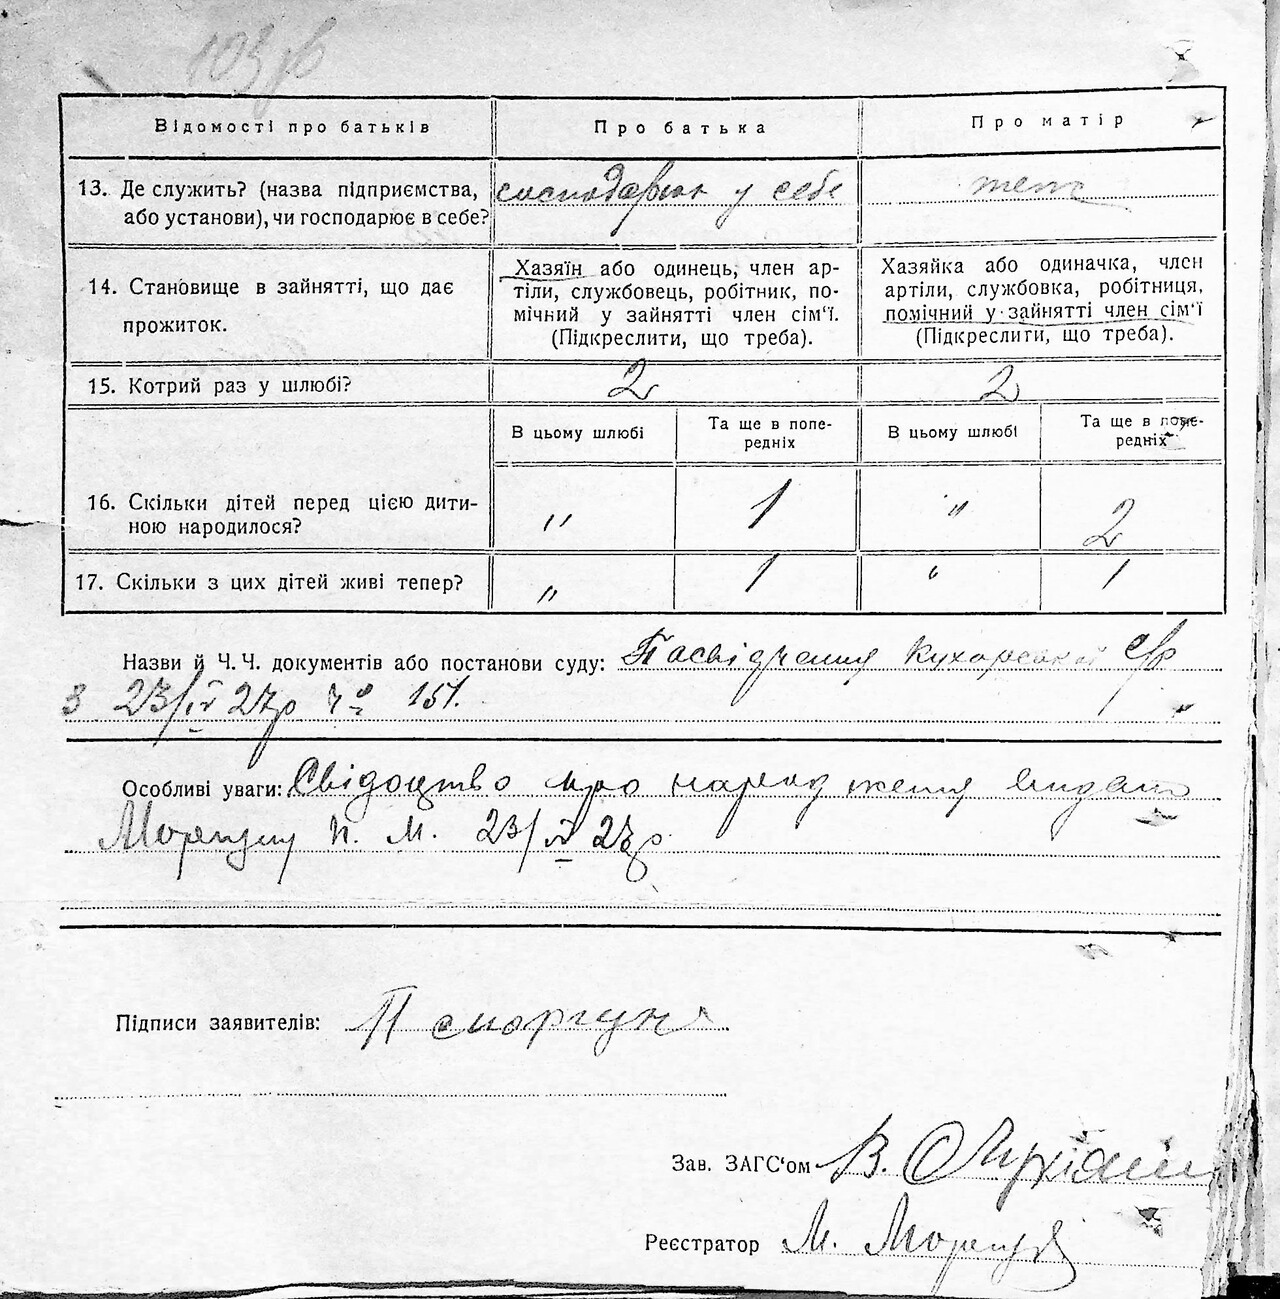 103 зв
Відомості про батьків
Про батька
Про матір
13. Де служить? (назва підприємства,
або установи), чи господарює в себе?
господарює у себе
теж
14. Становище в зайнятті, що дає
прожиток.
Хазяїн або одинець, член ар-
тіли, службовець, робітник, по-
мічний у зайнятті член сім'ї.
(Підкреслити, що треба).
Хазяйка або одиначка, член
артіли, службовка, робітниця,
помічний у зайнятті член сім'ї
(Підкреслити, що треба).
15. Котрий раз у шлюбі?
2
2
В цьому шлюбі
Та ще в попе-
редніх
В цьому шлюбі
Та ще в попе-
редніх
16. Скільки дітей перед цією дити-
ною народилося?
"
1
"
2
17. Скільки з цих дітей живі тепер?
"
1
"
1
Назви й Ч. Ч. документів або постанови суду: Посвідчення Кухарської с/р
з 23/IV 27р чо 151.
Особливі уваги: Свідоцтво про народження видано
Моргуну П. М. 23/IV 27р
Підписи заявителів: П Моргун
Зав. ЗАГС'ом В.
Реєстратор М.